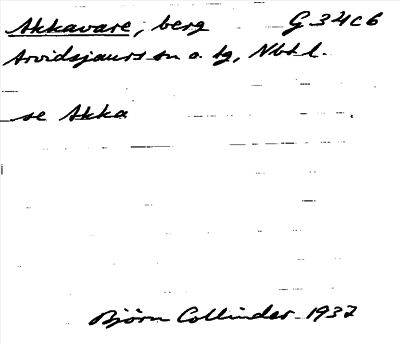 Akkavare, berg G 34 c 6
Arvidsjaurs sn o. tg, Nbtl.
se Akka
Björn Collinder 1937